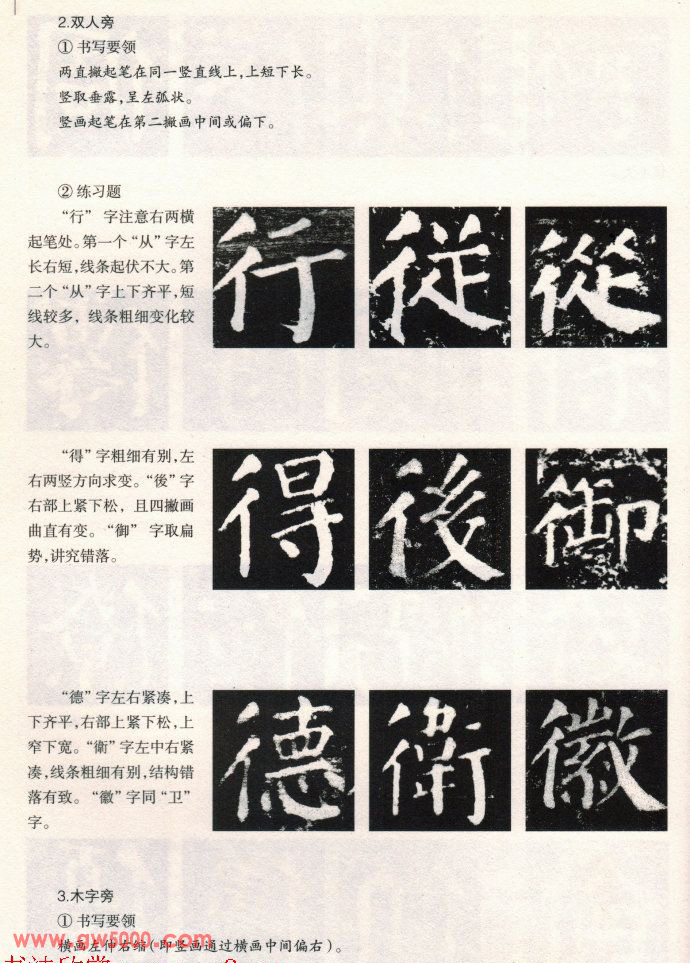 2.双人旁
① 书写要领
两直撇起笔在同一竖直线上,上短下长。
竖取垂露,呈左弧状。
竖画起笔在第二撇画中间或偏下。
② 练习题
“行” 字注意右两横
起笔处。第一个“从”字左
长右短,线条起伏不大。第
二个“从”字上下齐平,短
线较多，线条粗细变化较
大。
行 従 從
“得”字粗细有别,左
右两竖方向求变。“後”字
右部上紧下松，且四撇画
曲直有变。“御” 字取扁
势,讲究错落。
得 後 御
“德”字左右紧凑,上
下齐平,右部上紧下松,上
窄下宽。“衛”字左中右紧
凑,线条粗细有别,结构错
落有致。“徽”字同“卫”
字。
德 衛 徽
3.木字旁
① 书写要领
横画左伸右缩(即竖画通过横画中间偏右)。
www.gw5000.com
书法欣赏